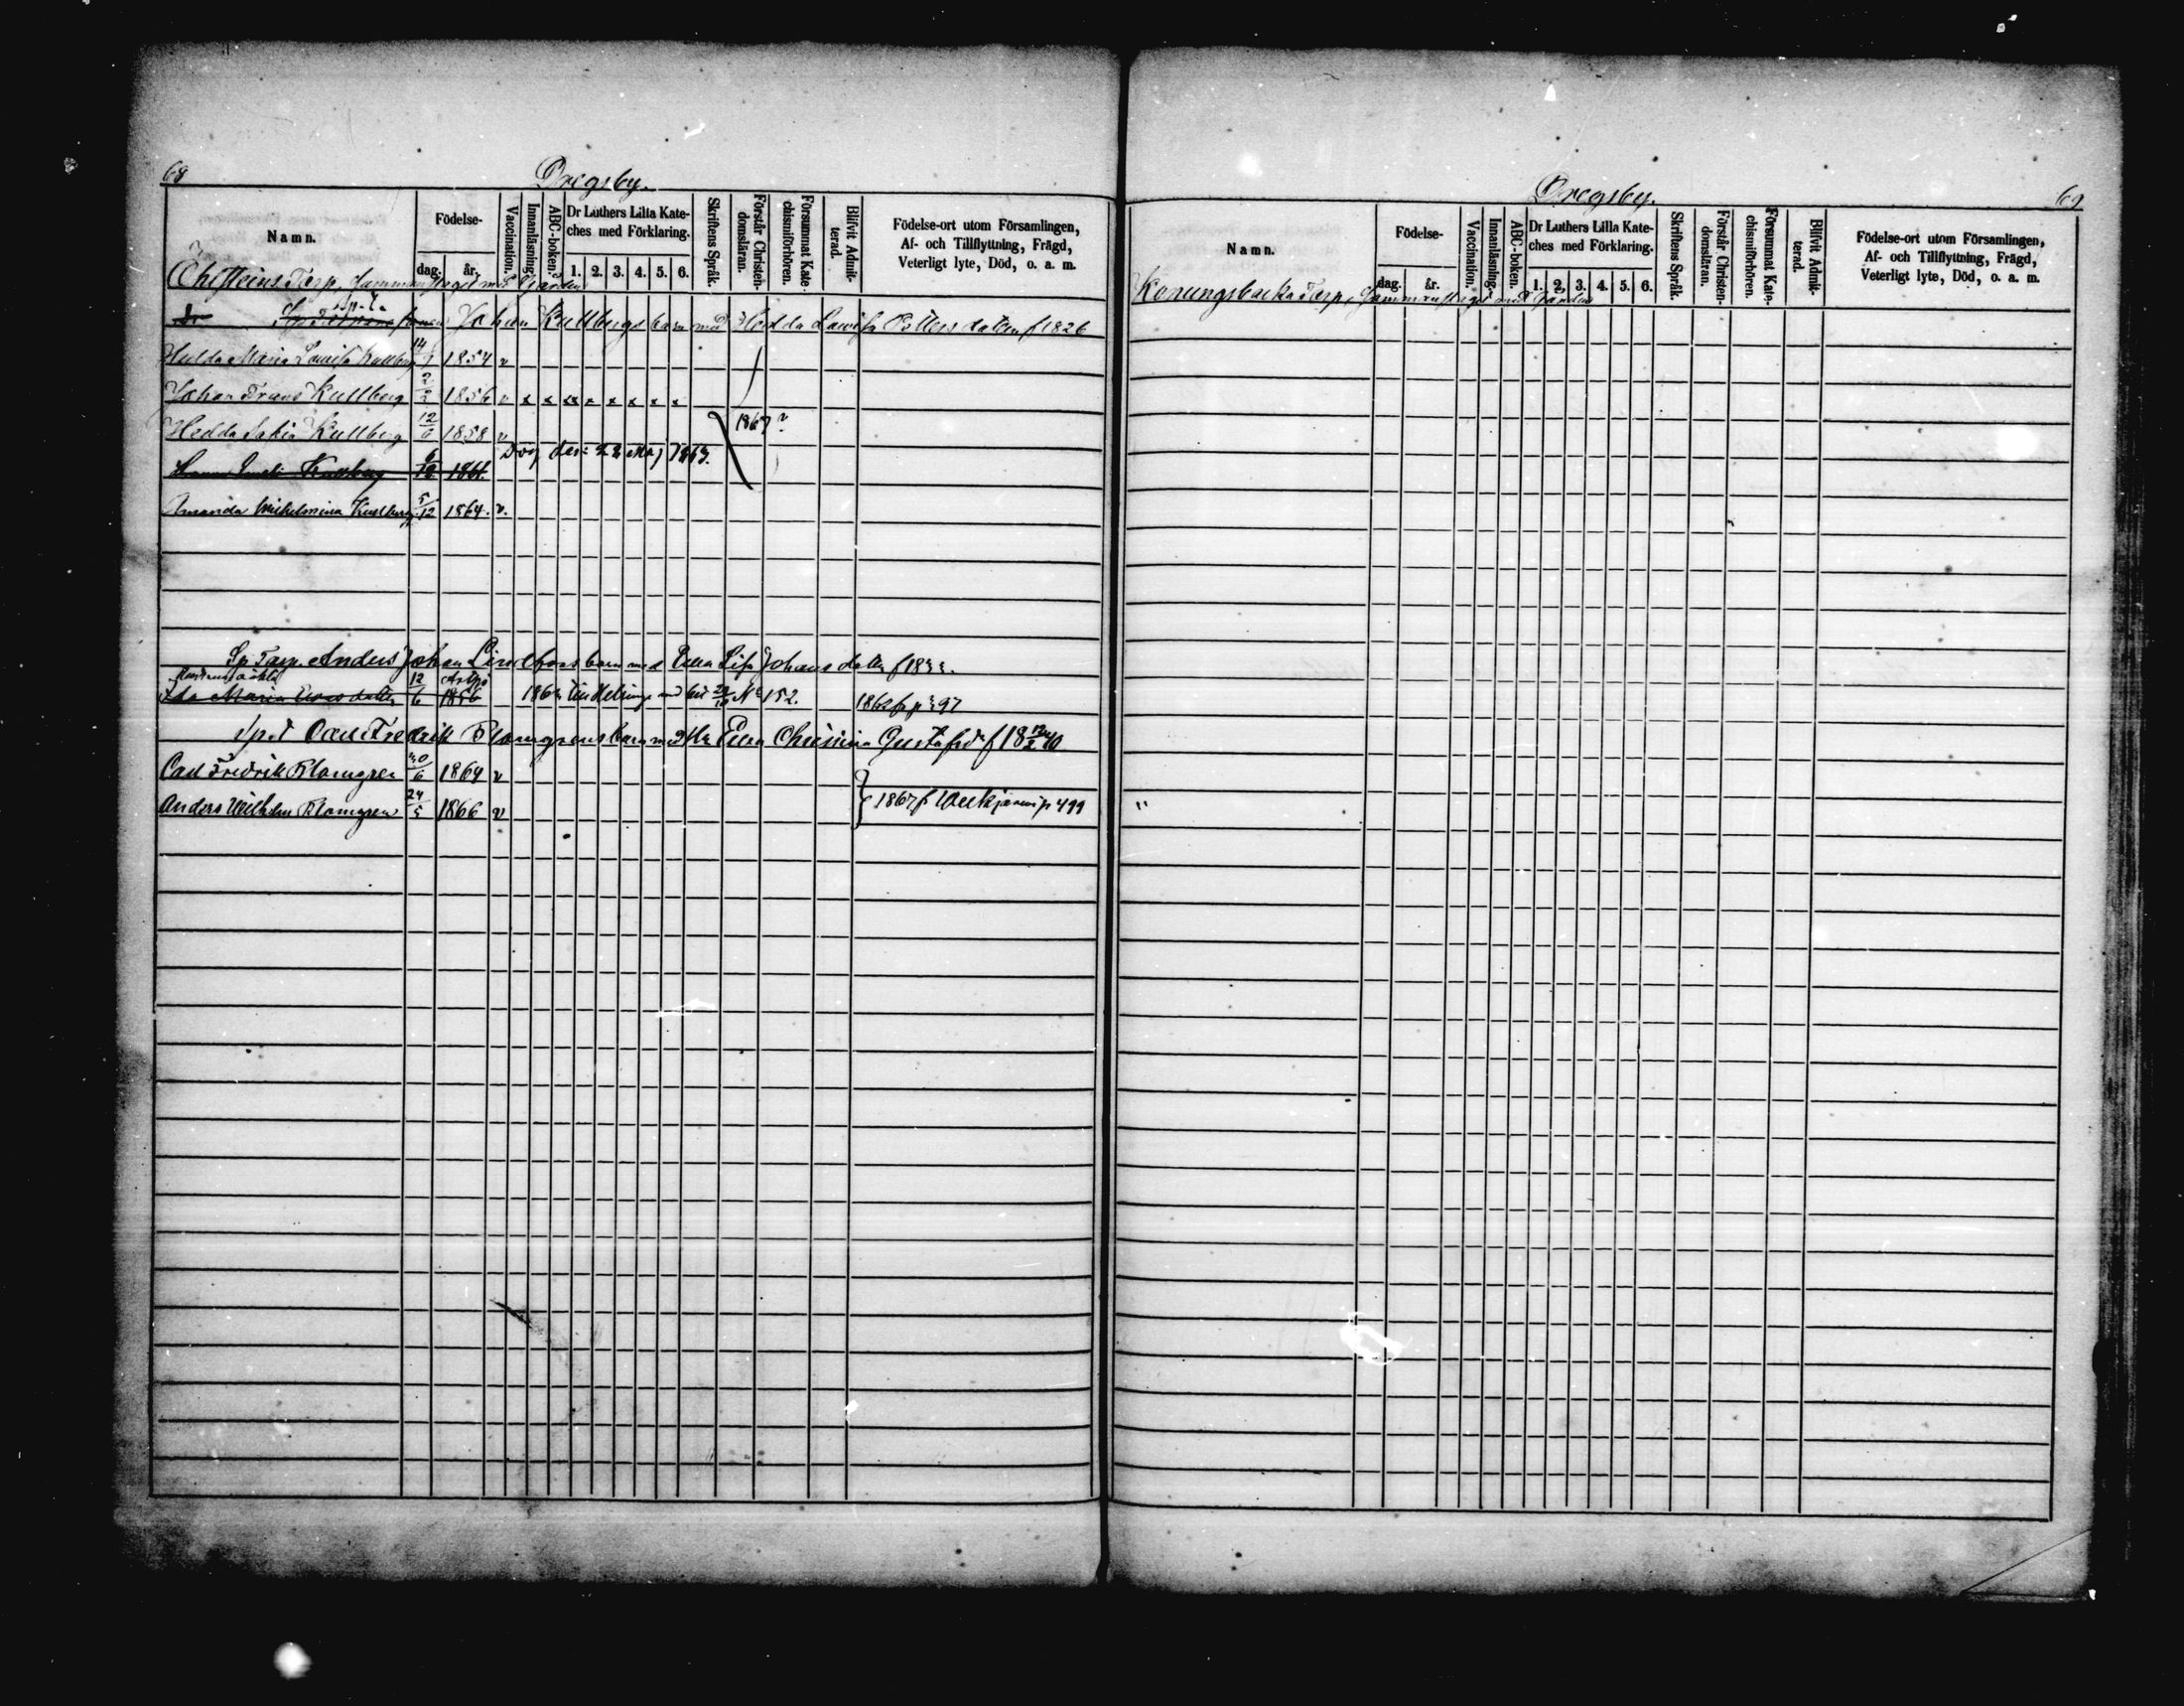 68
Dregsby.
Namn.
Födelse-
dag.
år.
Vaccination.
Innanläsning.
ABC-boken.
Dr Luthers Lilla Kate-
ches med Förklaring.
1. 2. 3. 4. 5. 6.
Skriftens Språk.
Förstår Christen-
domsläran.
Försummat Kate-
chismiförhören.
Blifvit Admit-
terad.
Födelse-ort utom Församlingen,
Af- och Tillflyttning, Frägd,
Veterligt lyte, Död, o. a. m.
Torp, Sammanslaget med Gården
Johan Kullbergs barn med Hedda Lovisa f 1826
Hulda Maria Lovisa Kullberg 14 1854 v
Johan Frans Kullberg 2/2 1856 v x x x x x x x x
Hedda Sofia Kullberg 12/6 1858 v 1867 v
Kullberg 6/12 1861. Dog den 22 Maj 1863.
Amanda Wilhelmina Kullberg 5/12 1864. v.
Sp Torp. Anders Johan Lindfors barn med Eva Lisa Johansdotter f
Ida Maria 12/6 1856 med bet N 152. 1862 fr p 97
Carl Fredrik Blomgrens barn med Hu Eva Christina Gustafsd f 18 12/2 40
Carl Fredrik Blomgren 20/6 1864 v
Anders Wilhelm Blomgren 24/5 1866 v 1867 f p 499
Dregsby.
69
Namn.
Födelse-
dag.
år.
Vaccination.
Innanläsning.
ABC-boken.
Dr Luthers Lilla Kate-
ches med Förklaring.
1. 2. 3. 4. 5. 6.
Skriftens Språk.
Förstår Christen-
domsläran.
Försummat Kate-
chismiförhören.
Blifvit Admit-
terad.
Födelse-ort utom Församlingen,
Af- och Tillflyttning, Frägd,
Veterligt lyte, Död, o. a. m.
Konungsbacka Torp, Sammanslaget med Gården
"